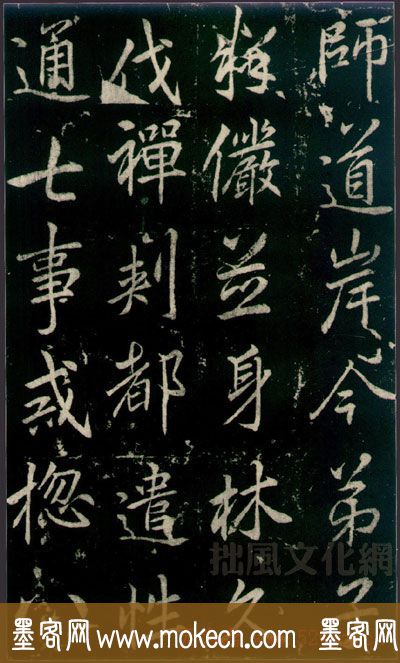 師道岸今弟子
釋儼並身林久
伐禪刹都遣性
通七事或揔
拙風文化網
墨客网 www.mokecn.com 墨客网